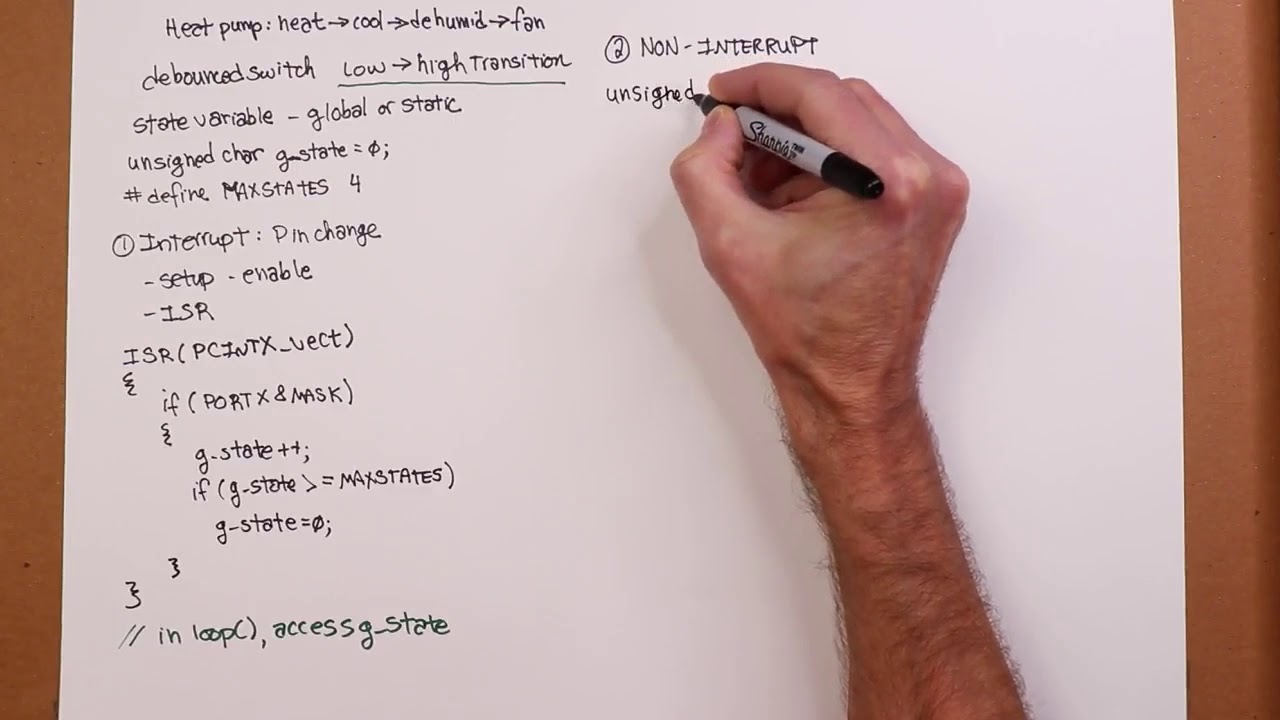 Heat pump: heat→cool→dehumid→fan
debounced switch low→high Transition
state variable - global or static
unsigned char g_state = 0;
# define MAXSTATES 4
① Interrupt: Pin change
- setup - enable
- ISR
ISR(PCINTX_vect)
{
if (PORTX & MASK)
{
g_state++;
if (g_state >= MAXSTATES)
g_state=0;
}
}
// in loop(), access g_state
② NON-INTERRUPT
unsigned
Sharpie TWIN TIP